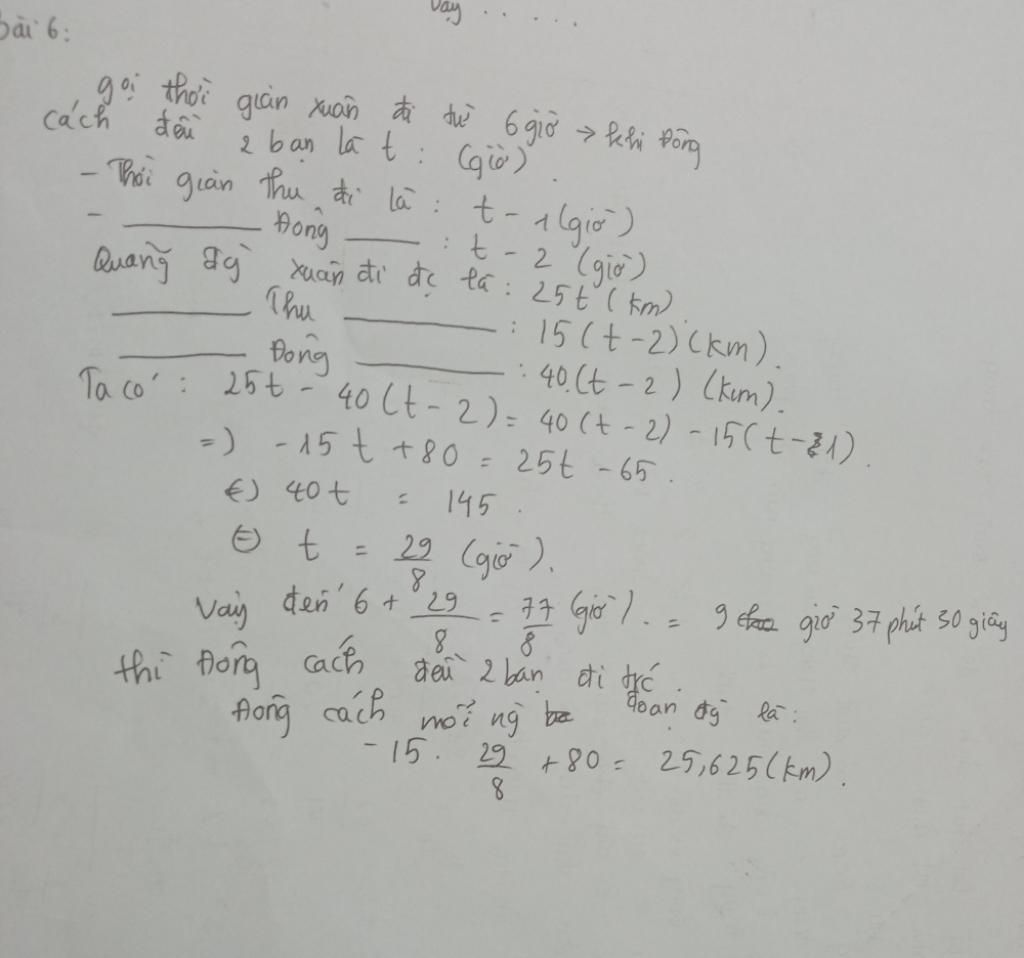 Vậy . . . . .
bài 6:
gọi thời gian xuân đi từ 6 giờ → khi Đông
cách đều 2 bạn là t : (giờ).
- Thời gian thu đi là : t - 1 (giờ)
- ——— Đông ——— : t - 2 (giờ)
Quãng đg xuân đi đc là : 25t (km)
——— Thu ——— : 15(t-2)(km).
——— Đông ——— : 40.(t-2) (km).
Ta có : 25t - 40(t-2) = 40(t-2) - 15(t-1).
=) -15t + 80 = 25t - 65.
(=) 40t = 145.
(=) t = 29/8 (giờ).
Vậy đến 6 + 29/8 = 77/8 (giờ). = 9 giờ 37 phút 30 giây
thì Đông cách đều 2 bạn đi trc.
Đông cách mỗi ng đoạn đg là:
-15. 29/8 + 80 = 25,625(km).